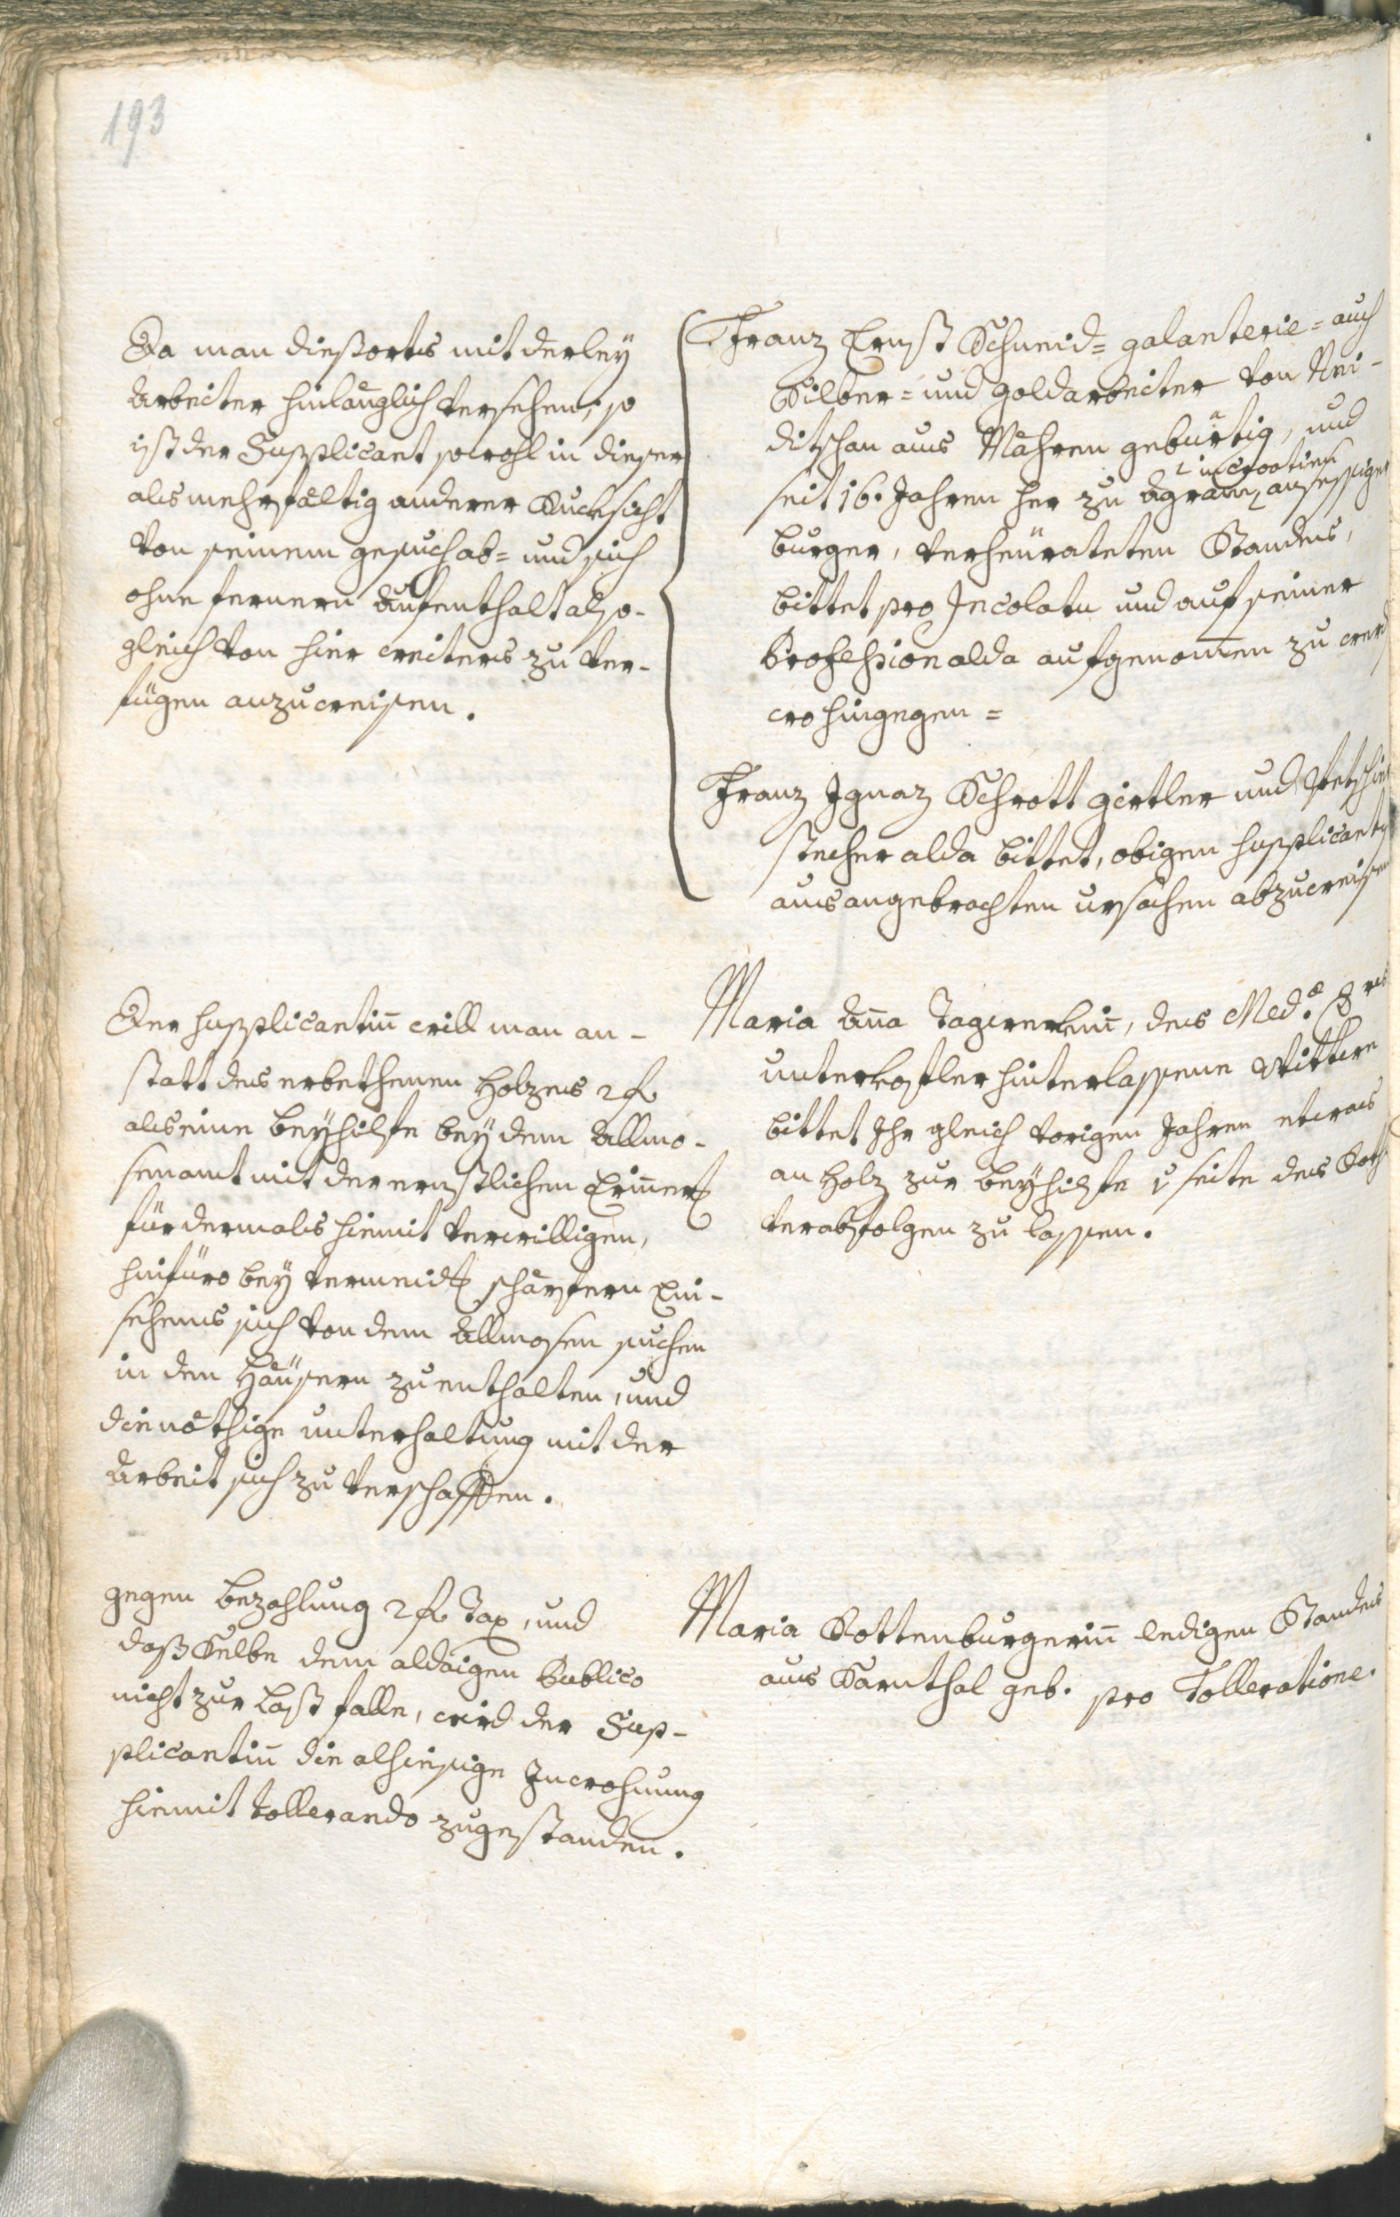 193
Da man dießorts mit derleÿ
Arbeiter hinlänglich versehen, so
ist der Supplicant sowohl in dieser
als mehrfältig anderer Rucksicht
von seinem gesuch ab= und sich
ohne fernern Aufenthalt also-
gleich von hier weiters zu ver-
fügen anzuweisen.
Franz Ernst Schmid= galanterie= auch
Silber= und goldarbeiter von Nei-
ditschau aus Mähren gebürtig, und
in Croatien
seit 16. Jahren her zu Agram ansessiger
burger, verheürateten Standes,
bittet pro Incolatu und auf seiner
Profession alda aufgenom̄en zu werd
wohingegen =
Franz Ignaz Schrott girtler und Petschier
stecher alda bittet, obigen supplicanten
aus angebrachten ursachen abzuweisen
Der supplicantin̄ will man an-
statt des erbethenen Holzes 2 f
als eine beÿhilfe beÿ dem Allmo-
senamt mit der ernstlichen Erinner
für dermals hiemit verwilligen,
hinfüro beÿ vermeid schärfern Ein-
sehens sich von dem Allmosen suchen
in den Häüsern zu enthalten, und
die nöthige unterhaltung mit der
Arbeit sich zu verschaffen.
Maria An̄a Tagwerkerin̄, des Med.
unterkofler hinterlassene Wittwe
bittet Ihr gleich vorigen Jahren etwas
an Holz zur beÿhilfe seite des
verabfolgen zu lassen.
gegen bezahlung 2 f Tax, und
daß Selbe dem aldaigen Publico
nicht zur last falle, wird der Sup-
plicantin̄ die alhiesige Inwohnung
hiemit tollerando zugestanden.
Maria Rottenburgerin̄ ledigen Standes
aus Sarnthal geb. pro Tolleratione.